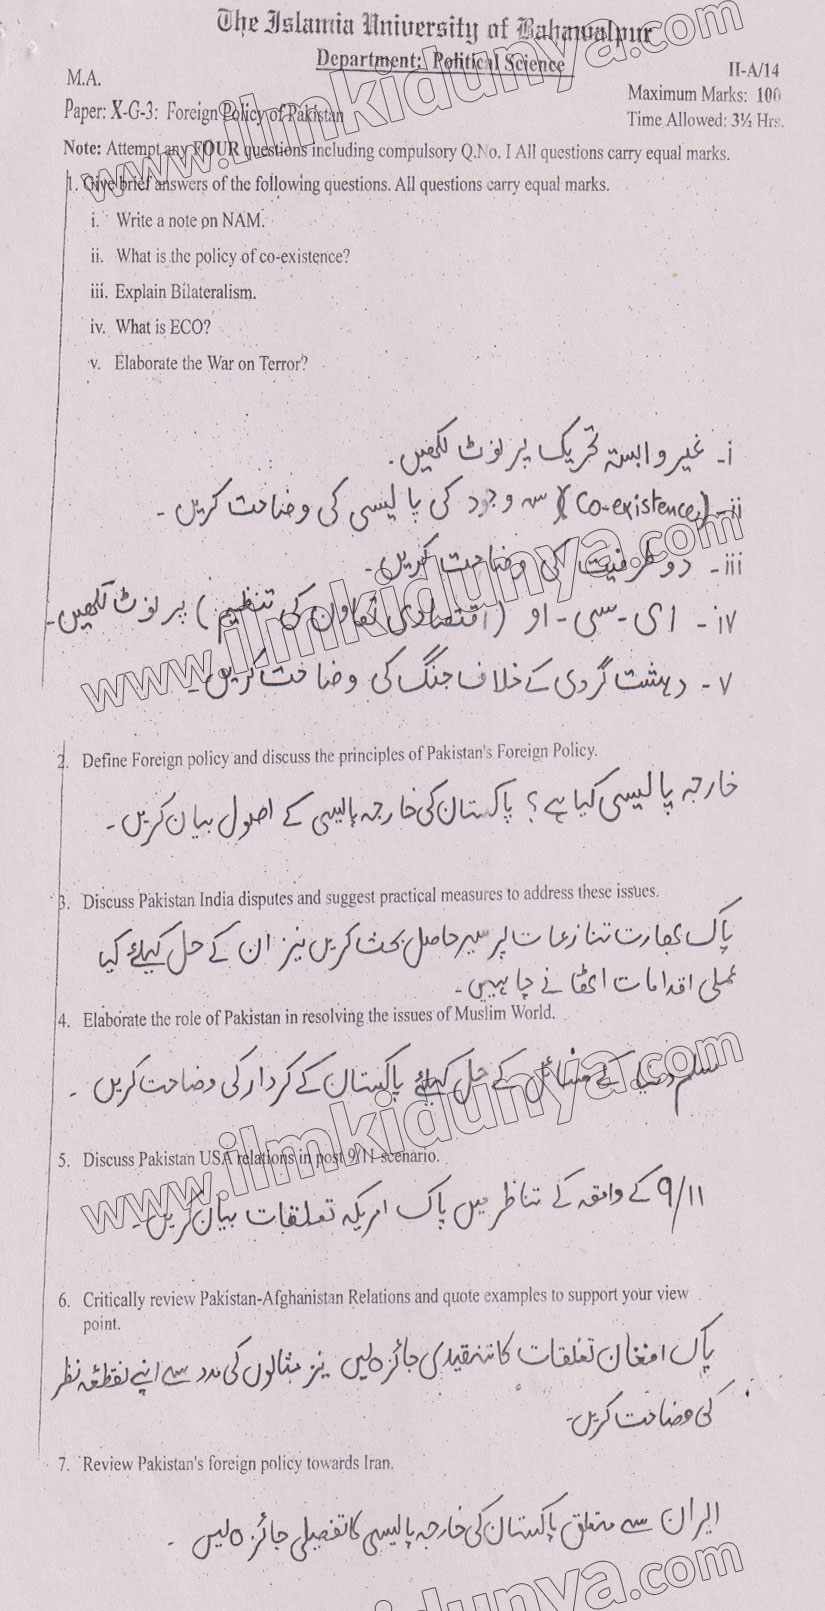 The Islamia University of Bahawalpur
Department: Political Science
M.A.
II-A/14
Paper: X-G-3: Foreign Policy of Pakistan
Maximum Marks: 100
Time Allowed: 3½ Hrs.
Note: Attempt any FOUR questions including compulsory Q.No. I All questions carry equal marks.
1. Give brief answers of the following questions. All questions carry equal marks.
i. Write a note on NAM.
ii. What is the policy of co-existence?
iii. Explain Bilateralism.
iv. What is ECO?
v. Elaborate the War on Terror?
i۔ غیر وابستہ تحریک پر نوٹ لکھیں۔
ii۔ (Co-existence) وجود کی پالیسی کی وضاحت کریں۔
iii۔ دو طرفیت کی وضاحت کریں۔
iv۔ ای۔سی۔او (اقتصادی تعاون کی تنظیم) پر نوٹ لکھیں۔
v۔ دہشت گردی کے خلاف جنگ کی وضاحت کریں۔
2. Define Foreign policy and discuss the principles of Pakistan's Foreign Policy.
خارجہ پالیسی کیا ہے؟ پاکستان کی خارجہ پالیسی کے اصول بیان کریں۔
3. Discuss Pakistan India disputes and suggest practical measures to address these issues.
پاک بھارت تنازعات پر سیر حاصل بحث کریں نیز ان کے حل کیلئے کیا
عملی اقدامات اٹھانے چاہییں۔
4. Elaborate the role of Pakistan in resolving the issues of Muslim World.
مسلم دنیا کے مسائل کے حل کیلئے پاکستان کے کردار کی وضاحت کریں۔
5. Discuss Pakistan USA relations in post 9/11 scenario.
9/11 کے واقعہ کے تناظر میں پاک امریکہ تعلقات بیان کریں۔
6. Critically review Pakistan-Afghanistan Relations and quote examples to support your view
point.
پاک افغان تعلقات کا تنقیدی جائزہ لیں نیز مثالوں کی مدد سے اپنے نقطئہ نظر
کی وضاحت کریں۔
7. Review Pakistan's foreign policy towards Iran.
ایران سے متعلق پاکستان کی خارجہ پالیسی کا تفصیلی جائزہ لیں۔
www.ilmkidunya.com
www.ilmkidunya.com
www.ilmkidunya.com
ilmkidunya.com